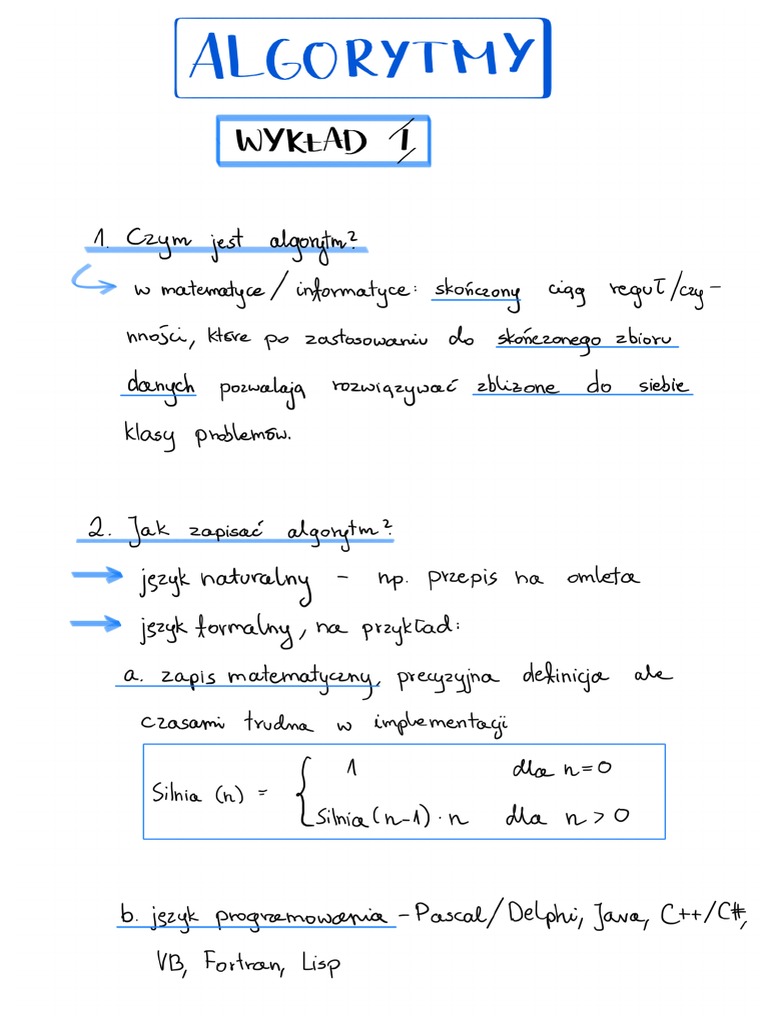 ALGORYTMY
WYKŁAD 1
1. Czym jest algorytm?
w matematyce / informatyce: skończony ciąg reguł/czy-
nności, które po zastosowaniu do skończonego zbioru
danych pozwalają rozwiązywać zbliżone do siebie
klasy problemów.
2. Jak zapisać algorytm?
język naturalny - np. przepis na omleta
język formalny, na przykład:
a. zapis matematyczny, precyzyjna definicja ale
czasami trudna w implementacji
1 dla n=0
Silnia (n) = {
Silnia(n-1) · n dla n > 0
b. język programowania - Pascal/Delphi, Java, C++/C#,
VB, Fortran, Lisp